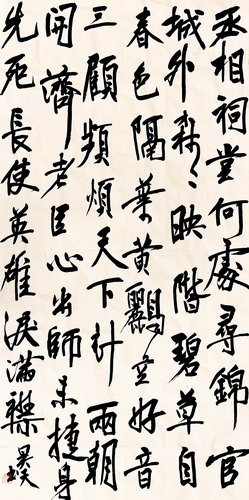 丞相祠堂何處尋錦官
城外森〻映階碧草自
春色隔葉黃鸝空好音
三顧頻煩天下計兩朝
開濟老臣心出師未捷身
先死長使英雄淚滿襟